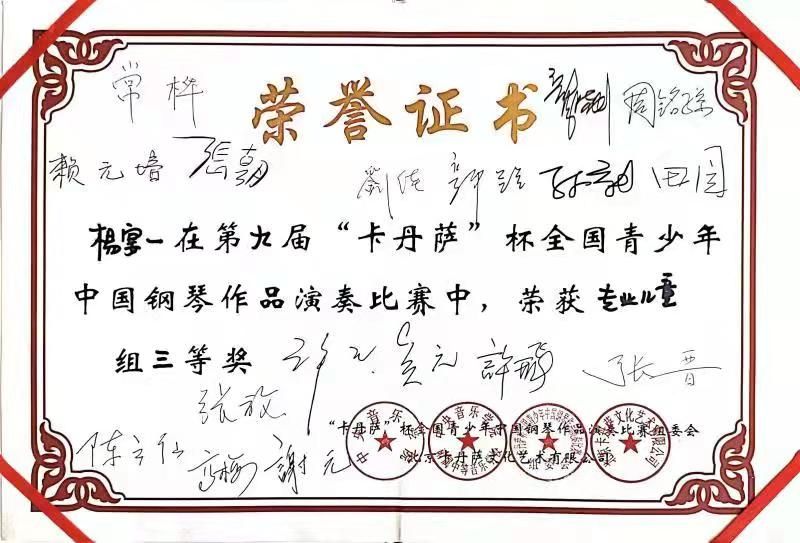 常桦
荣誉证书
周铭孙
赖元培 張朝
劉佳 郭 田园
杨宇一在第九届“卡丹萨”杯全国青少年
中国钢琴作品演奏比赛中，荣获专业儿童
组三等奖
吴元 許 张晋
张放
“卡丹萨”杯全国青少年中国钢琴作品演奏比赛组委会
北京卡丹萨文化艺术有限公司
陈 仙
高 謝元